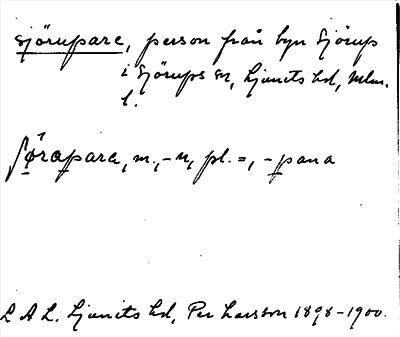 sjörupare, person från byn Sjörup
i Sjörups sn, Ljunits hd, Mlm.
l.
ʃørapara, m., -n, pl. =, -pana
L A L. Ljunits hd, Per Larsson 1898-1900.